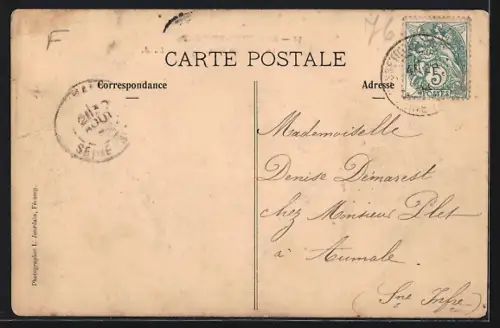 F
76
CARTE POSTALE
Correspondance
Adresse
5
POSTES
AOUT
SEINE
Mademoiselle
Denise Démarest
chez Monsieur Plet
à Aumale
(Sne Infre)
Photographie L. Jourdain,